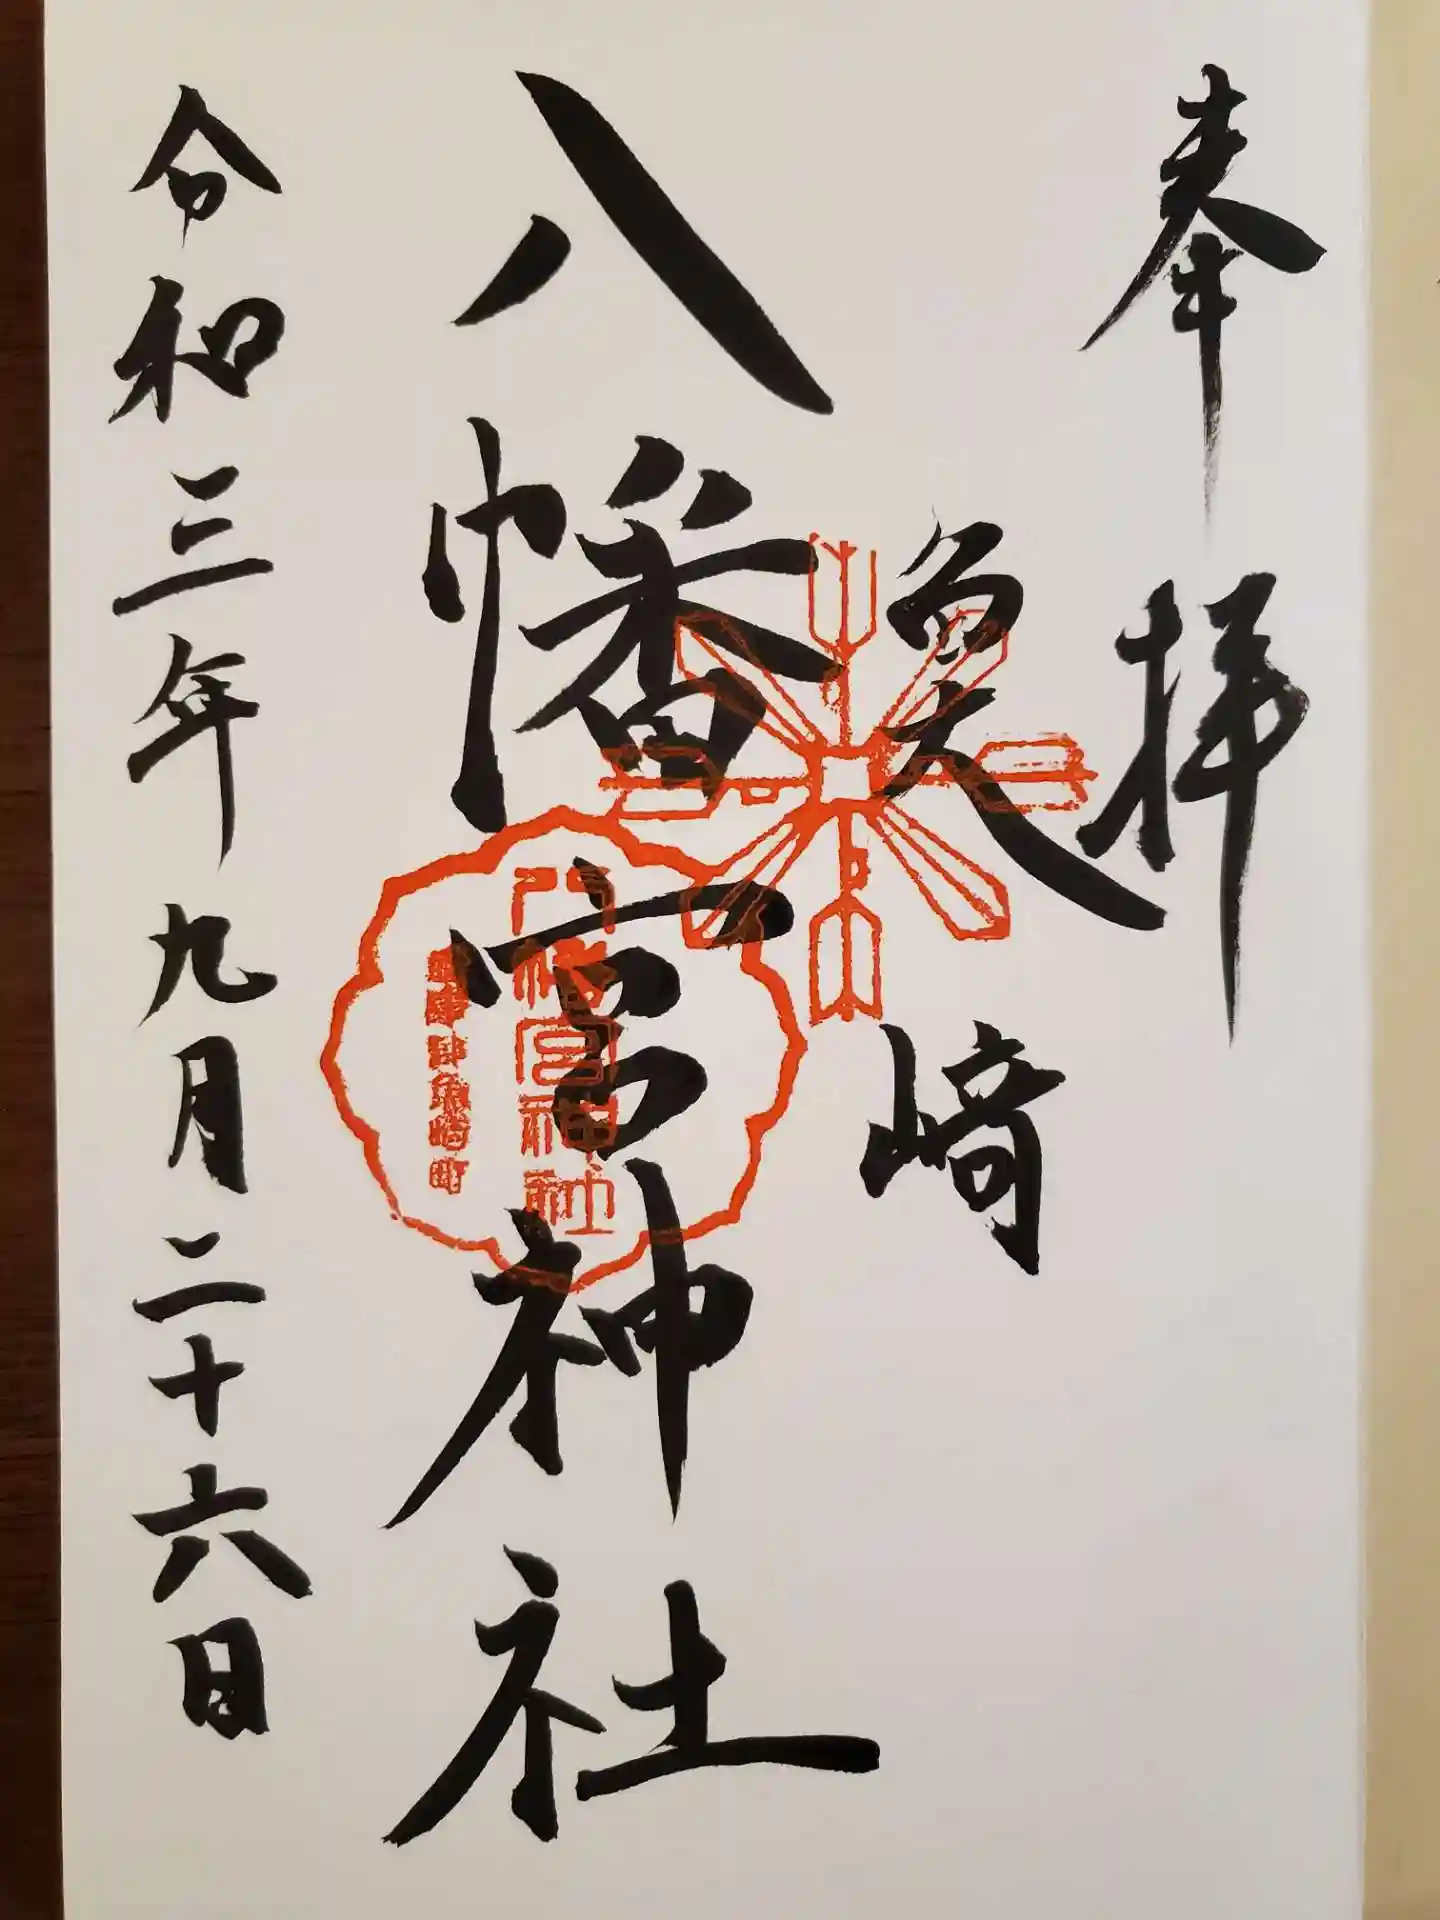 奉拝
魚崎
八幡宮神社
令和三年九月二十六日
八幡宮神社
魚崎町